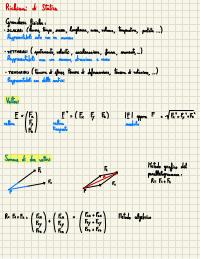 Richiami di Statica
Grandezze fisiche:
- SCALARI (massa, tempo, area, lunghezza, volume, temperatura, ...)
Rappresentabili solo con un numero
- VETTORIALI (spostamento, velocità, accelerazione, forza, momento, ...)
Rappresentabili con un numero, direzione e verso
- TENSORIALI (tensore di sforzo, tensore di deformazione, ...)
Rappresentabili con delle matrici
Vettori
F = (Fx Fy Fz) F^T = (Fx Fy Fz) |F| oppure F = √(Fx² + Fy² + Fz²)
vettore vettore trasposto
Somma di due vettori
F₁ F₂
Metodo grafico del
parallelogramma:
R = F₁ + F₂
R = F₁ + F₂ = (F₁x F₁y F₁z) + (F₂x F₂y F₂z) = (F₁x + F₂x F₁y + F₂y F₁z + F₂z) Metodo algebrico